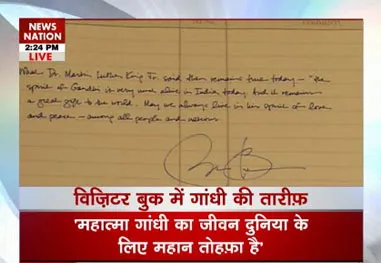 NEWS NATION
2:24 PM
LIVE
What Dr. Martin Luther King Jr. said then remains true today — "The
spirit of Gandhi is very much alive in India today. And it remains
a great gift to the world. May we always live in his spirit of love
and peace — among all people and nations.
विज़िटर बुक में गांधी की तारीफ़
'महात्मा गांधी का जीवन दुनिया के
लिए महान तोहफ़ा है'